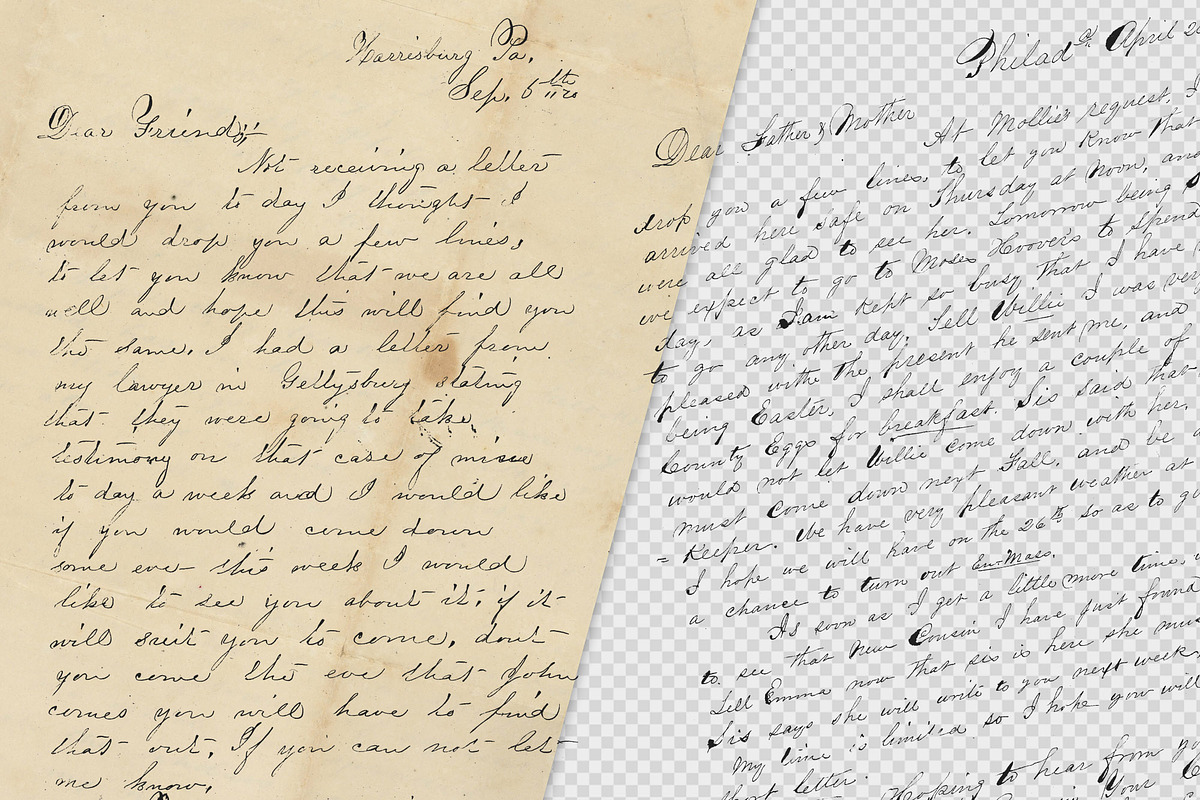 Harrisburg Pa.
Sep. 5th
Dear Friend;
Not receiving a letter
from you to day I thought I
would drop you a few lines,
to let you know that we are all
well and hope this will find you
the same. I had a letter from
my lawyer in Gettysburg stating
that they were going to take
testimony on that case of mine
to day a week and I would like
if you would come down
some eve this week I would
like to see you about it, if it
will suit you to come, dont
you come the eve that John
comes you will have to find
that out, If you can not let
me know,
Philada April
Dear Father & Mother
At Mollies request, I
drop you a few lines, to let you Know that
arrived here safe on Thursday at Noon, and
were all glad to see her. Tomorrow being
we expect to go to Moses Hoovers to spend
day, as I am Kept so busy that I have
to go any other day. Tell Willie I was very
pleased withe the present he sent me, and
being Easter, I shall enjoy a couple of
County Eggs for breakfast. Sis said that
would not let Willie come down with her,
must come down next Fall, and be a
= Keeper. We have very pleasant weather at
I hope we will have on the 26th so as to go
a chance to turn out En-Mass.
As soon as I get a little more time,
to see that New Cousin I have just found
Tell Emma now that sis is here she must
Sis says she will write to you next week,
My time is limited so I hope you will
short letter. Hoping to hear from you
Your